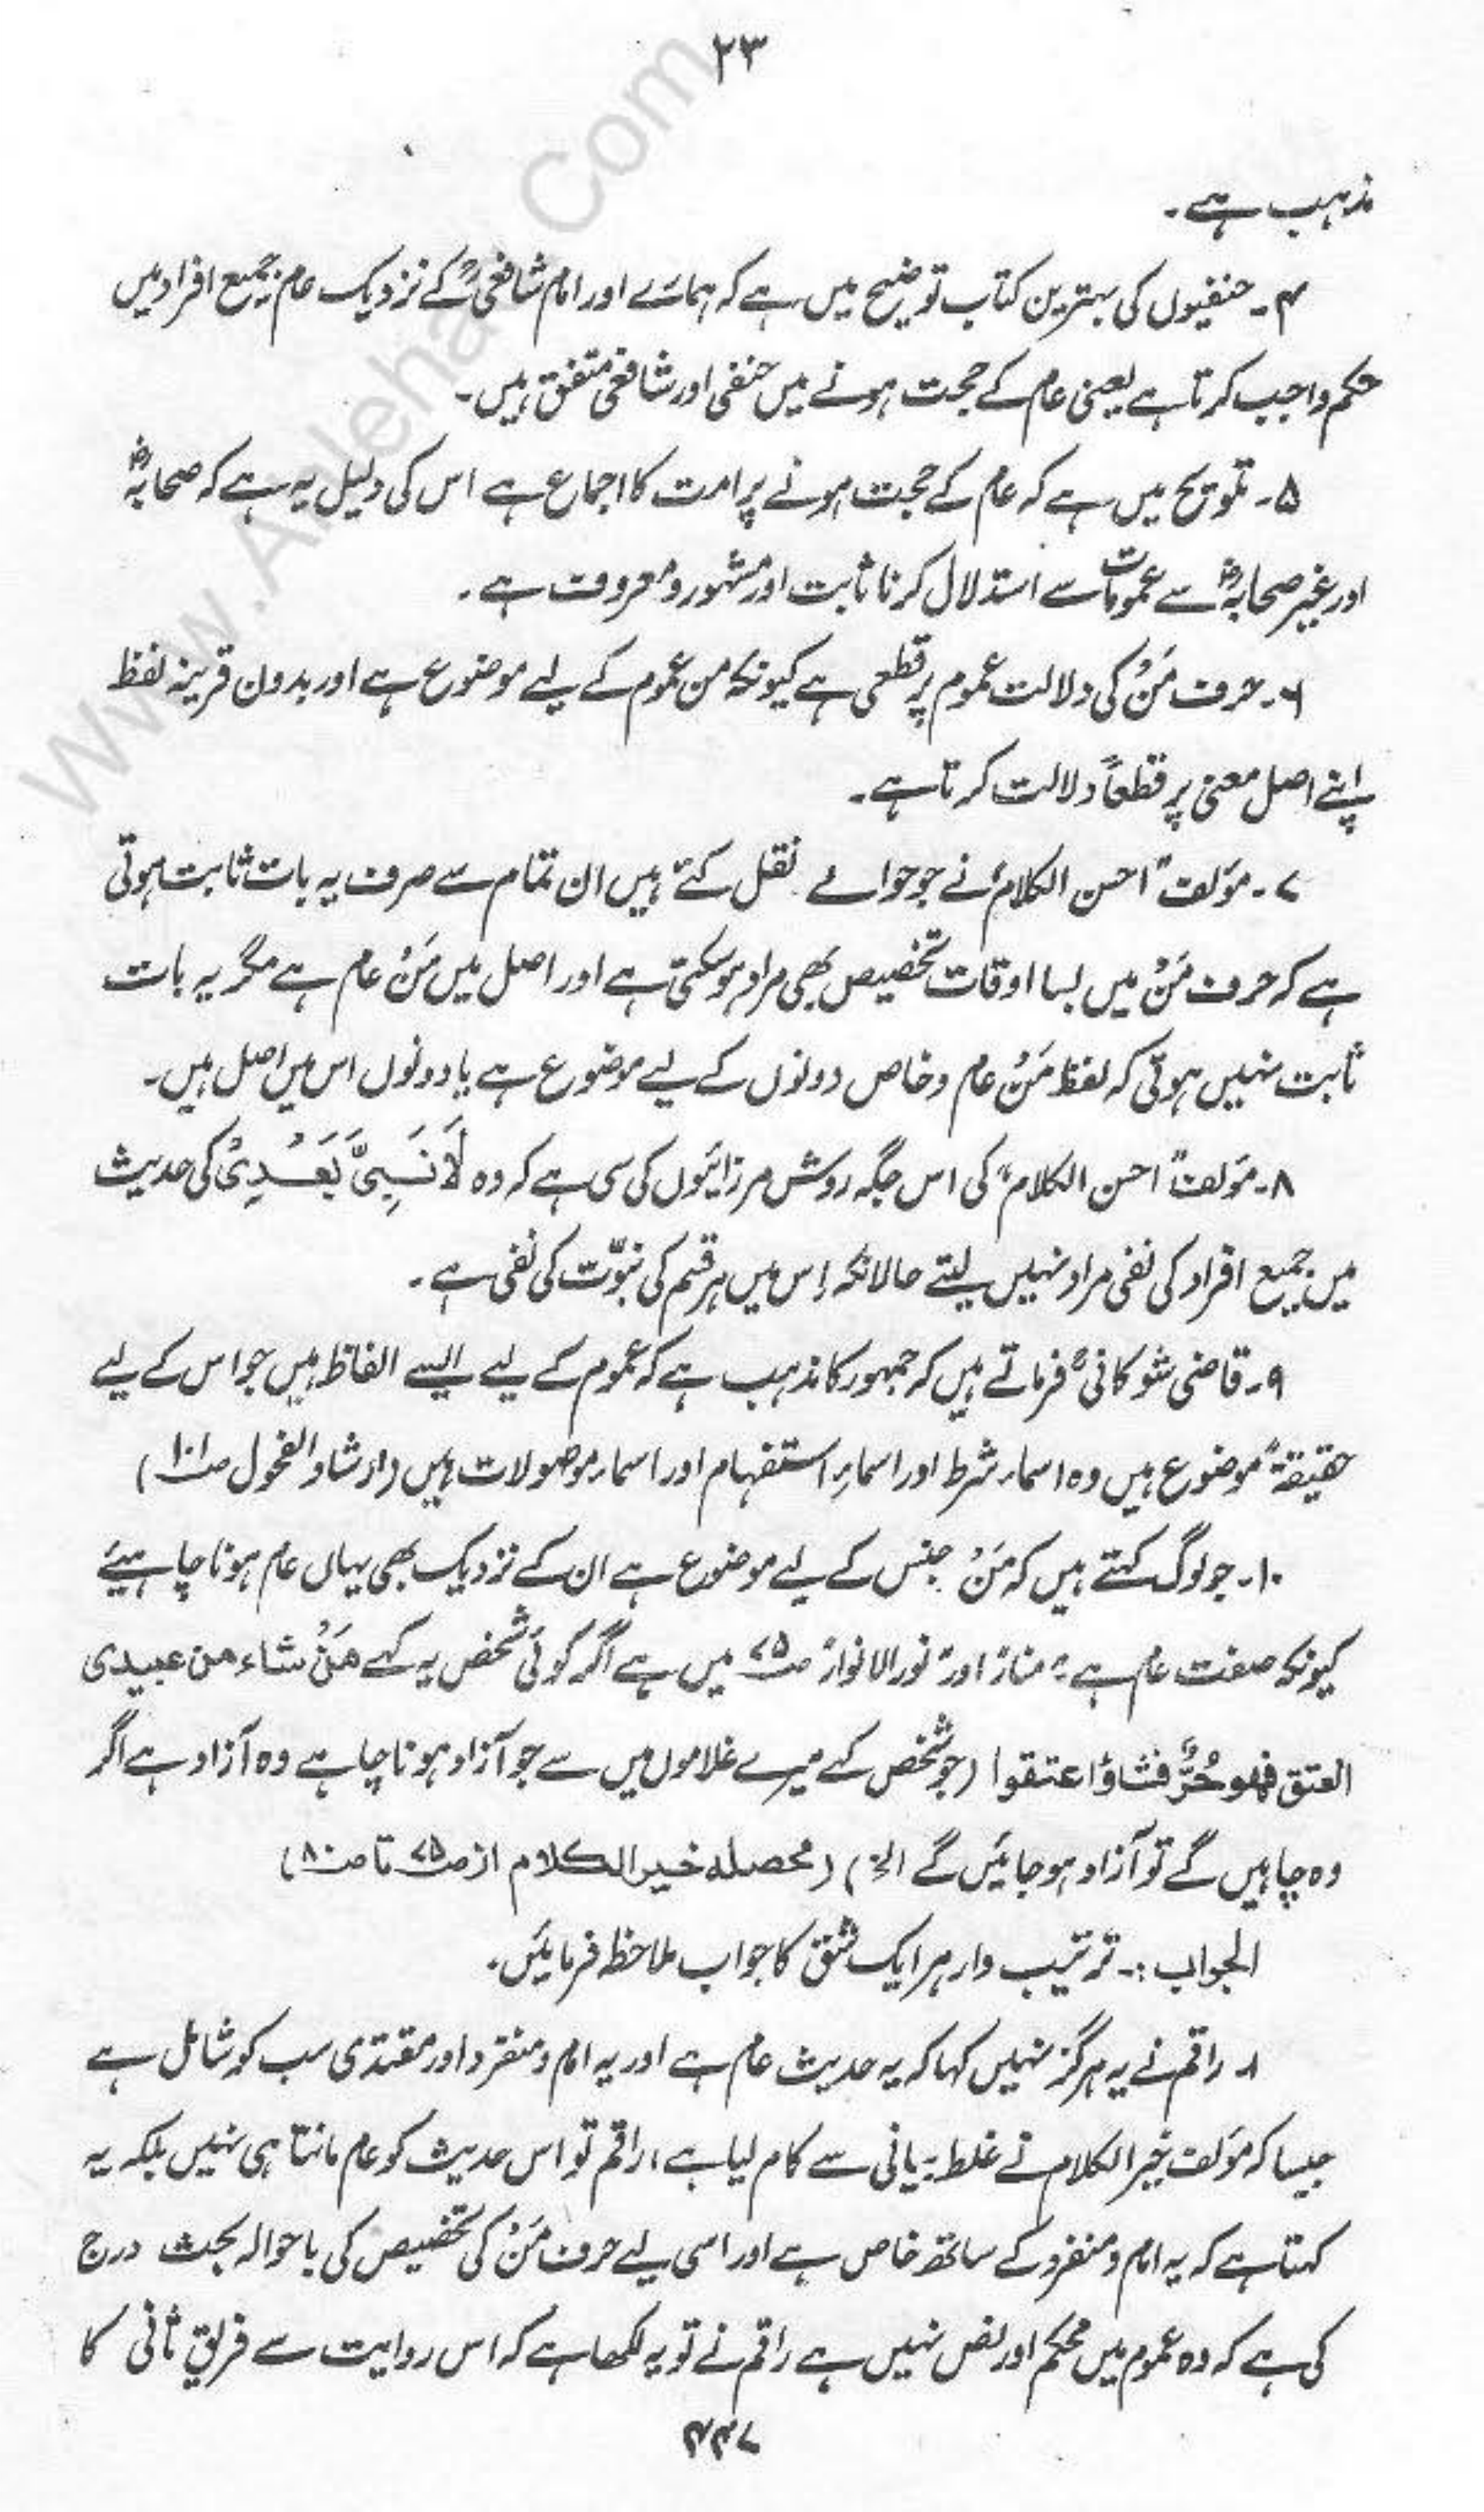 ۲۳
مذہب ہے۔
۴۔ حنفیوں کی بہترین کتاب توضیح میں ہے کہ ہمارے اور امام شافعیؒ کے نزدیک عام جمیع افراد میں
حکم واجب کرتا ہے یعنی عام کے حجت ہونے میں حنفی اور شافعی متفق ہیں۔
۵۔ تلویح میں ہے کہ عام کے حجت ہونے پر امت کا اجماع ہے اس کی دلیل یہ ہے کہ صحابہؓ
اور غیر صحابہؓ سے عمومات سے استدلال کرنا ثابت اور مشہور و معروف ہے۔
۶۔ حرف مَنْ کی دلالت عموم پر قطعی ہے کیونکہ من عموم کے لیے موضوع ہے اور بدون قرینہ لفظ
اپنے اصل معنی پر قطعاً دلالت کرتا ہے۔
۷۔ مؤلف "احسن الکلام" نے جو حوالے نقل کئے ہیں ان تمام سے صرف یہ بات ثابت ہوتی
ہے کہ حرف مَنْ میں بسا اوقات تخصیص بھی مراد ہو سکتی ہے اور اصل میں مَنْ عام ہے مگر یہ بات
ثابت نہیں ہوتی کہ لفظ مَنْ عام و خاص دونوں کے لیے موضوع ہے یا دونوں اس میں اصل ہیں۔
۸۔ مؤلف "احسن الکلام" کی اس جگہ روش مرزائیوں کی سی ہے کہ وہ لَا نَبِیَّ بَعْدِیْ کی حدیث
میں جمیع افراد کی نفی مراد نہیں لیتے حالانکہ اِس میں ہر قسم کی نبوّت کی نفی ہے۔
۹۔ قاضی شوکانیؒ فرماتے ہیں کہ جمہور کا مذہب ہے کہ عموم کے لیے ایسے الفاظ ہیں جو اس کے لیے
حقیقۃً موضوع ہیں وہ اسماء شرط اور اسماءِ استفہام اور اسماء موصولات ہیں (ارشاد الفحول ص۱۰۱)
۱۰۔ جو لوگ کہتے ہیں کہ مَنْ جنس کے لیے موضوع ہے ان کے نزدیک بھی یہاں عام ہونا چاہیئے
کیونکہ صفت عام ہے "منار" اور "نور الانوار" ص۷۵ میں ہے اگر کوئی شخص یہ کہے مَنْ شاء من عبیدی
العتق فھو حُرٌّ فشاؤا عتقوا (جو شخص کہے میرے غلاموں میں سے جو آزاد ہونا چاہے وہ آزاد ہے اگر
وہ چاہیں گے تو آزاد ہو جائیں گے الخ) (محصلہ خیر الکلام از ص۷۵ تا ص۸۰)
الجواب:۔ ترتیب وار ہر ایک شق کا جواب ملاحظہ فرمائیں۔
۱۔ راقم نے یہ ہرگز نہیں کہا کہ یہ حدیث عام ہے اور یہ امام و منفرد اور مقتدی سب کو شامل ہے
جیسا کہ مؤلف خیر الکلام نے غلط بیانی سے کام لیا ہے، راقم تو اس حدیث کو عام مانتا ہی نہیں بلکہ یہ
کہتا ہے کہ یہ امام و منفرد کے ساتھ خاص ہے اور اسی لیے حرف مَنْ کی تخصیص کی باحوالہ بحث درج
کی ہے کہ وہ عموم میں محکم اور نص نہیں ہے راقم نے تو یہ لکھا ہے کہ اس روایت سے فریقِ ثانی کا
۴۴۷